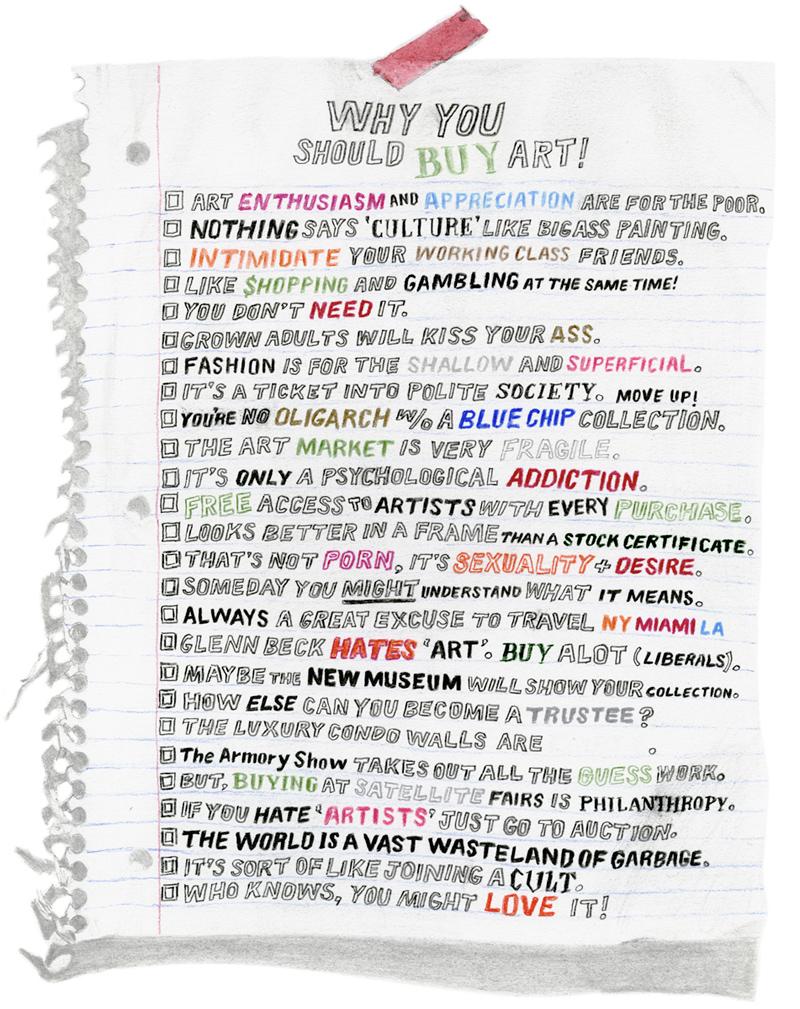 WHY YOU
SHOULD BUY ART!
ART ENTHUSIASM AND APPRECIATION ARE FOR THE POOR.
NOTHING SAYS 'CULTURE' LIKE BIGASS PAINTING.
INTIMIDATE YOUR WORKING CLASS FRIENDS.
LIKE $HOPPING AND GAMBLING AT THE SAME TIME!
YOU DON'T NEED IT.
GROWN ADULTS WILL KISS YOUR ASS.
FASHION IS FOR THE SHALLOW AND SUPERFICIAL.
IT'S A TICKET INTO POLITE SOCIETY. MOVE UP!
YOU'RE NO OLIGARCH W/O A BLUE CHIP COLLECTION.
THE ART MARKET IS VERY FRAGILE.
IT'S ONLY A PSYCHOLOGICAL ADDICTION.
FREE ACCESS TO ARTISTS WITH EVERY PURCHASE.
LOOKS BETTER IN A FRAME THAN A STOCK CERTIFICATE.
THAT'S NOT PORN, IT'S SEXUALITY + DESIRE.
SOMEDAY YOU MIGHT UNDERSTAND WHAT IT MEANS.
ALWAYS A GREAT EXCUSE TO TRAVEL NY MIAMI LA
GLENN BECK HATES 'ART'. BUY ALOT (LIBERALS).
MAYBE THE NEW MUSEUM WILL SHOW YOUR COLLECTION.
HOW ELSE CAN YOU BECOME A TRUSTEE?
THE LUXURY CONDO WALLS ARE .
The Armory Show TAKES OUT ALL THE GUESS WORK.
BUT, BUYING AT SATELLITE FAIRS IS PHILANTHROPY.
IF YOU HATE 'ARTISTS' JUST GO TO AUCTION.
THE WORLD IS A VAST WASTELAND OF GARBAGE.
IT'S SORT OF LIKE JOINING A CULT.
WHO KNOWS, YOU MIGHT LOVE IT!